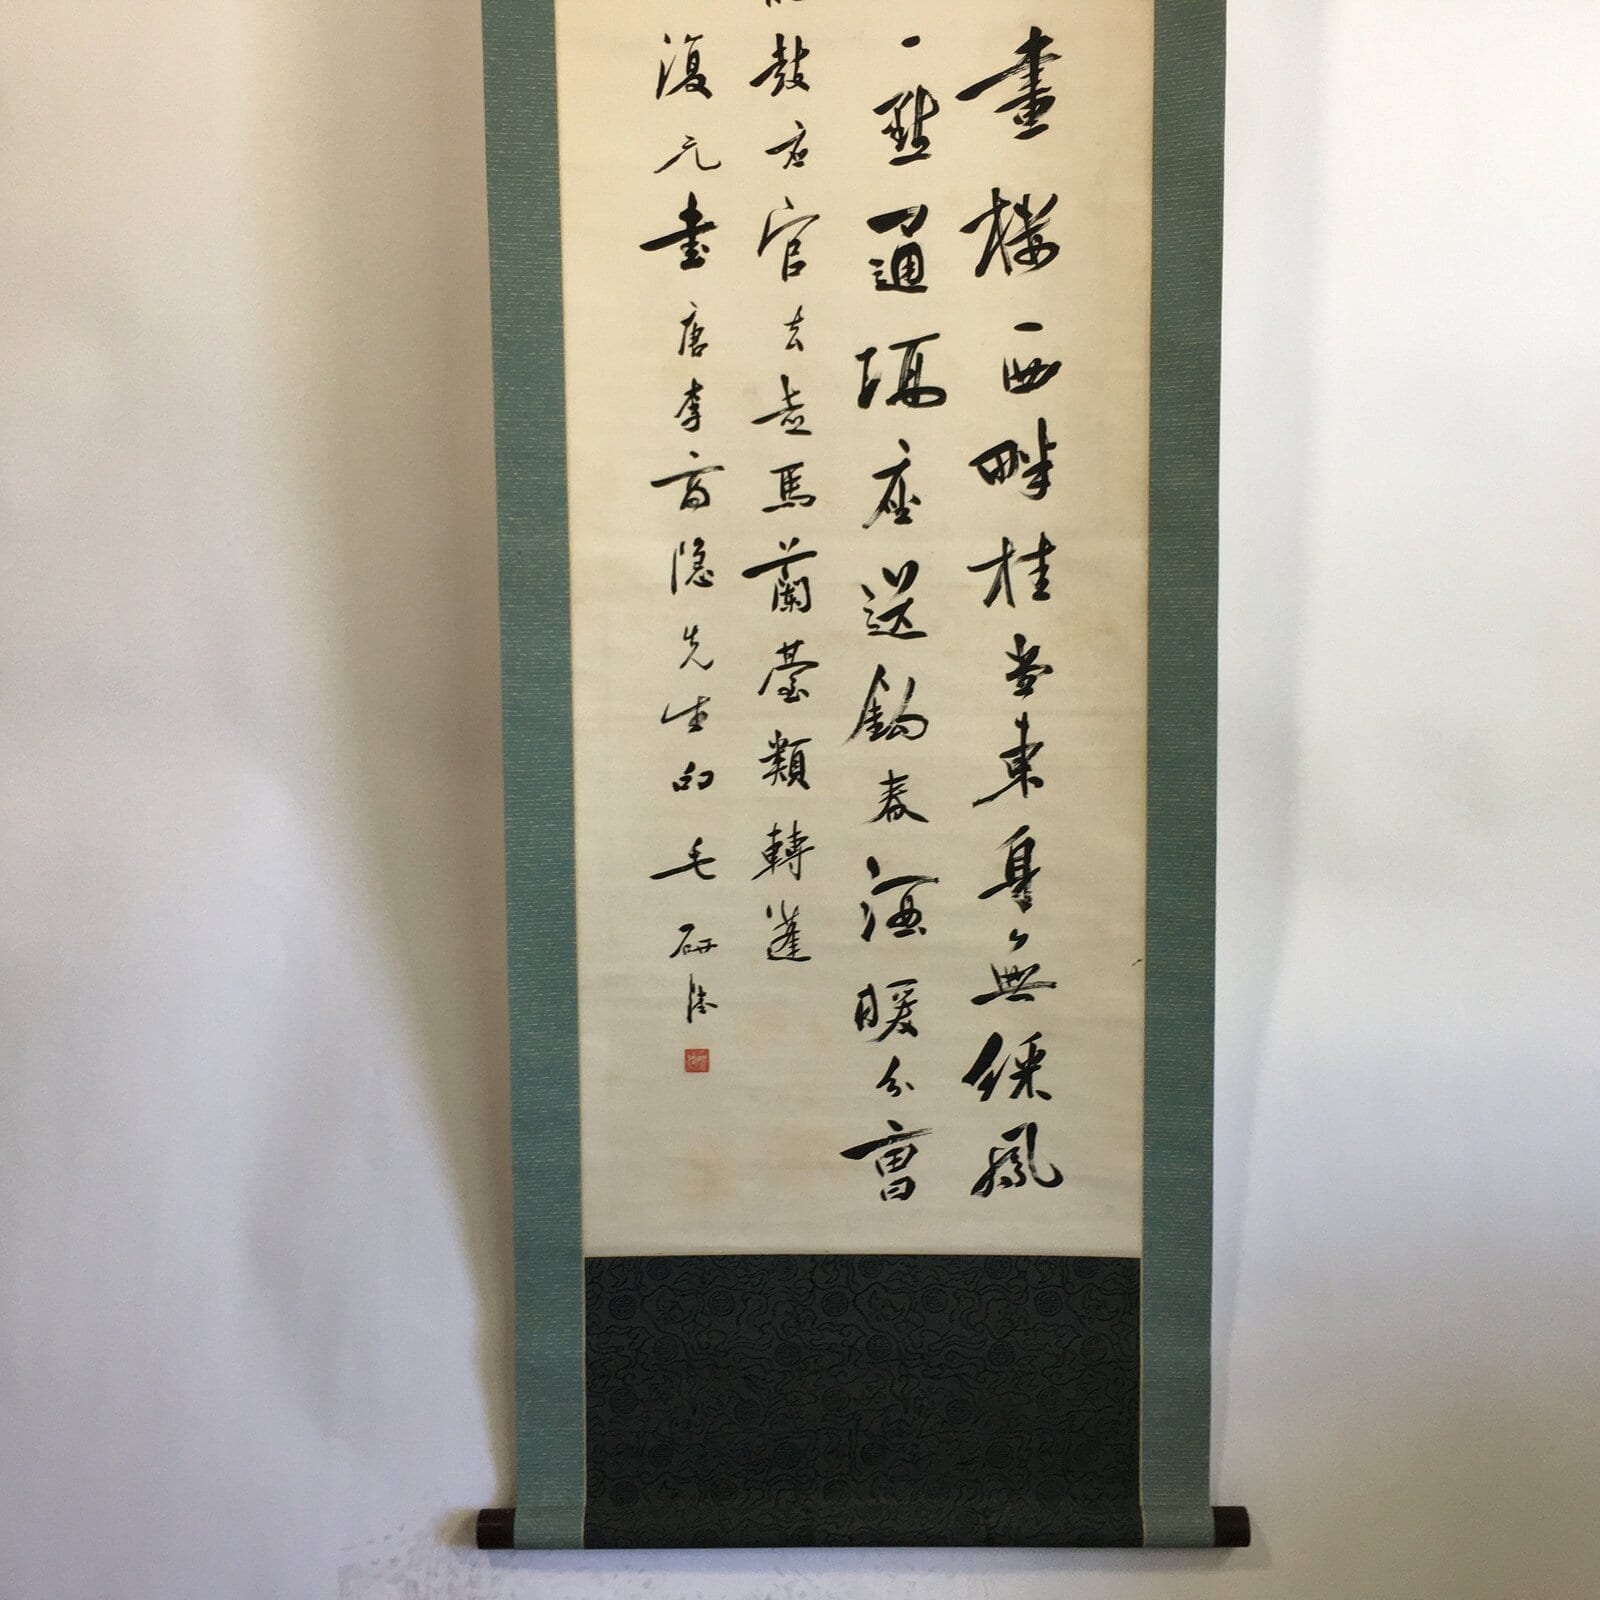 畫樓西畔桂堂東身無綵鳳
一點通隔座送鈎春酒暖分曹
鼓應官去走馬蘭臺類轉蓬
復元書唐李商隱先生句毛研